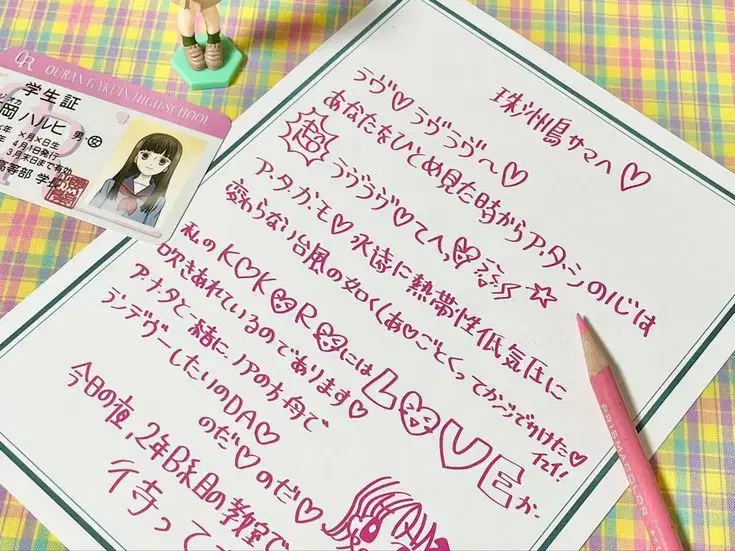 OURAN GAKUIN HIGH SCHOOL
学生証
岡 ハルヒ 男・女
×月×日生
4月1日発行
3月末日まで有効
高等部 学長
珠洲島サマへ♡
ラヴ♡ラヴラヴ〜♡
あなたをひとめ見た時からア・タ・シの心は
超ラヴラヴ♡てへっ
ア・タ・カ・モ♡永遠に熱帯性低気圧に
変わらない台風の如くしあ♡ごとくってカンジでかけた♡イェイ!
私のKOKOROにはLOVEが
吹きあれているのであります♡
ア・ナタと一緒に、ノアの方舟で
ランデヴーしたいのDA♡
のだ♡のだ♡
今日の夜、2年B組の教室で
待って
PRISMACOLOR